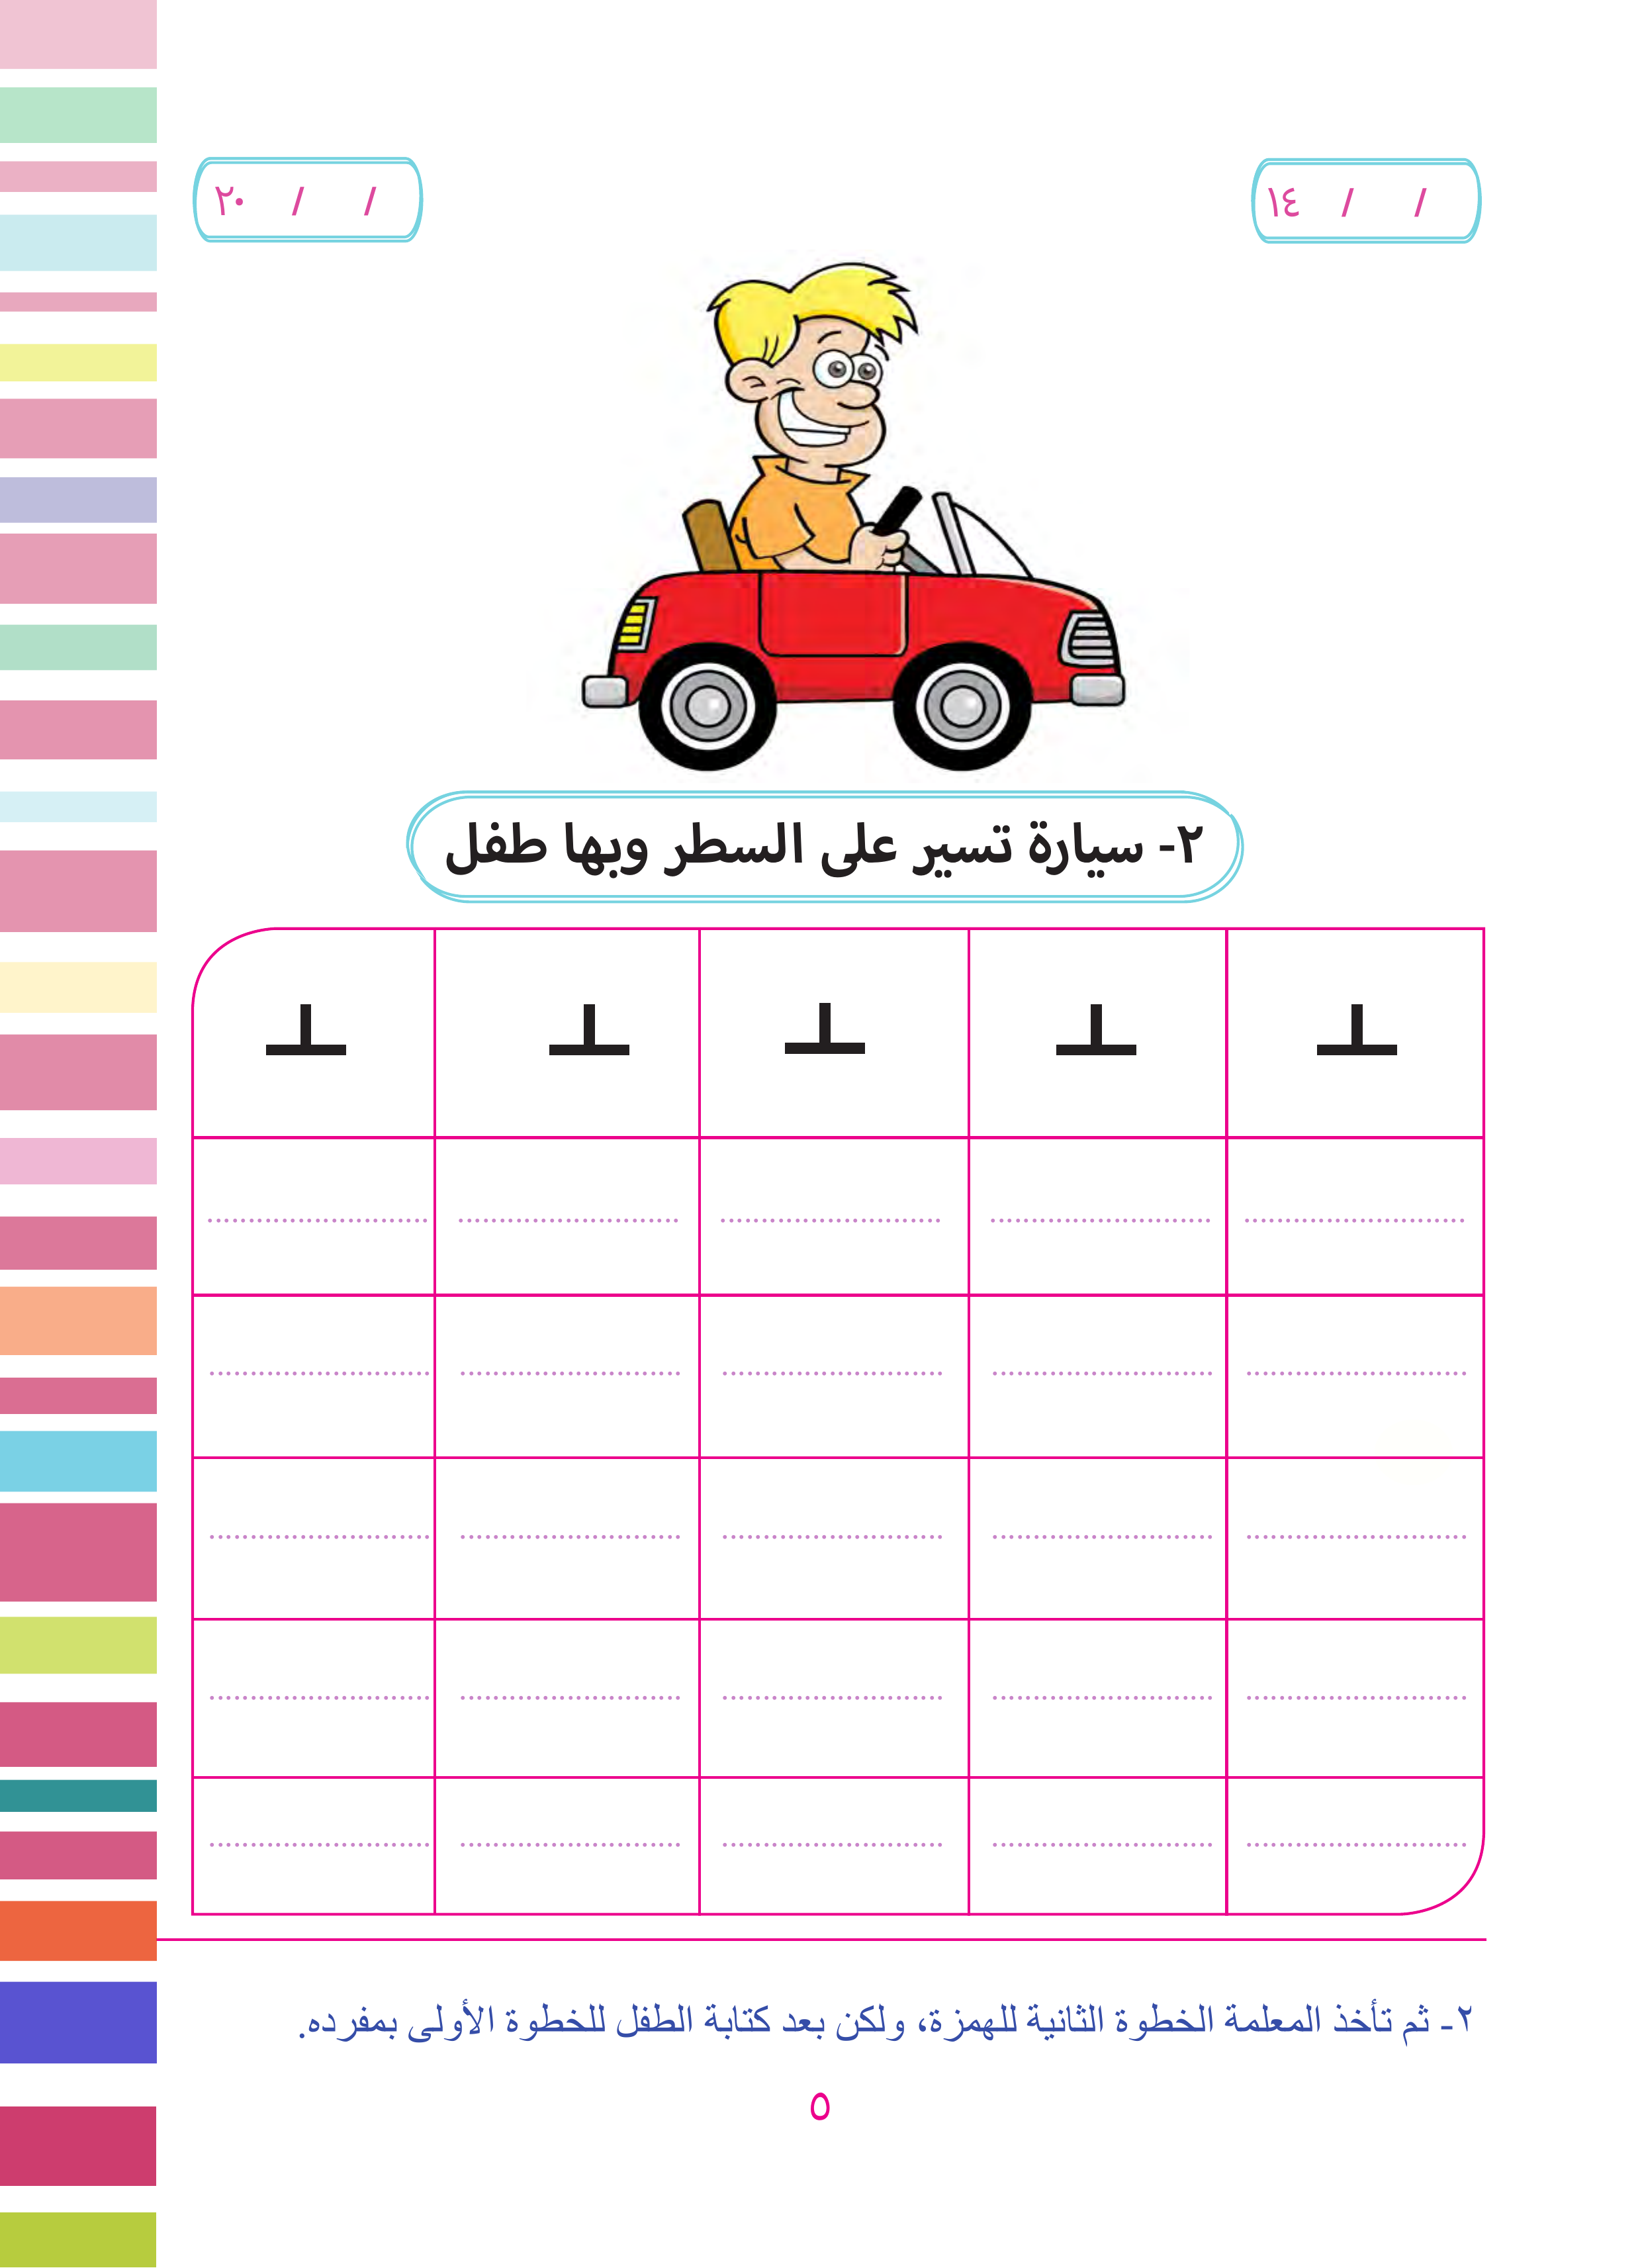 / / ١٤
/ / ٢٠
٢- سيارة تسير على السطر وبها طفل
٢- ثم تأخذ المعلمة الخطوة الثانية للهمزة، ولكن بعد كتابة الطفل للخطوة الأولى بمفرده.
٥